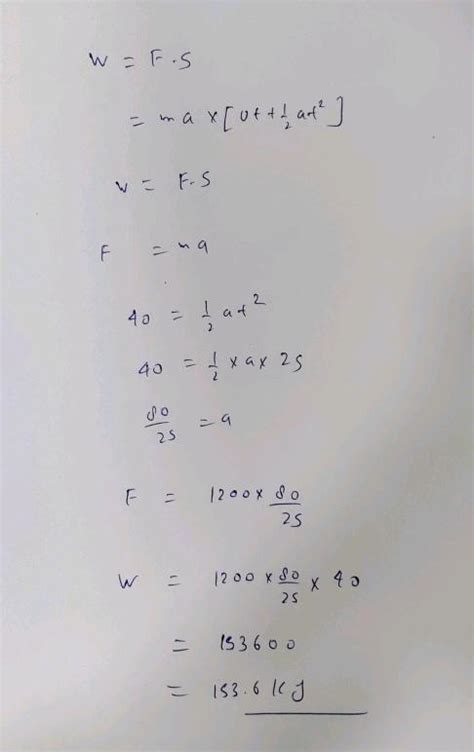 W = F.S
= ma x [ut + 1/2 at²]
W = F.S
F = ma
40 = 1/2 at²
40 = 1/2 x a x 25
80/25 = a
F = 1200 x 80/25
W = 1200 x 80/25 x 40
= 153600
= 153.6 KJ